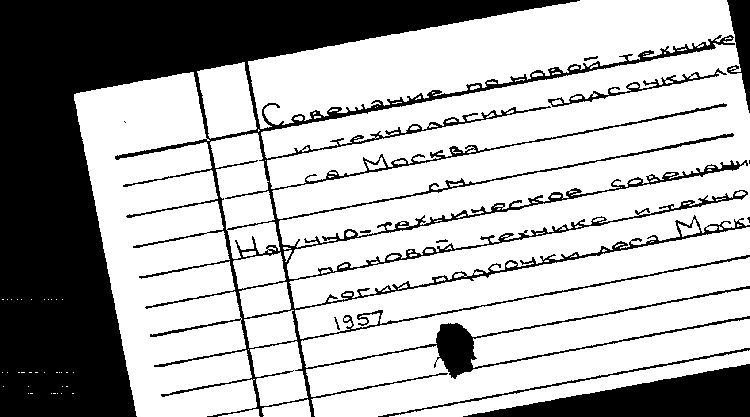 Совещание по новой технике
и технологии подсочки ле
са. Москва.
см.
Научно-техническое совещани
по новой технике и техно
логии подсочки леса Моск
1957.